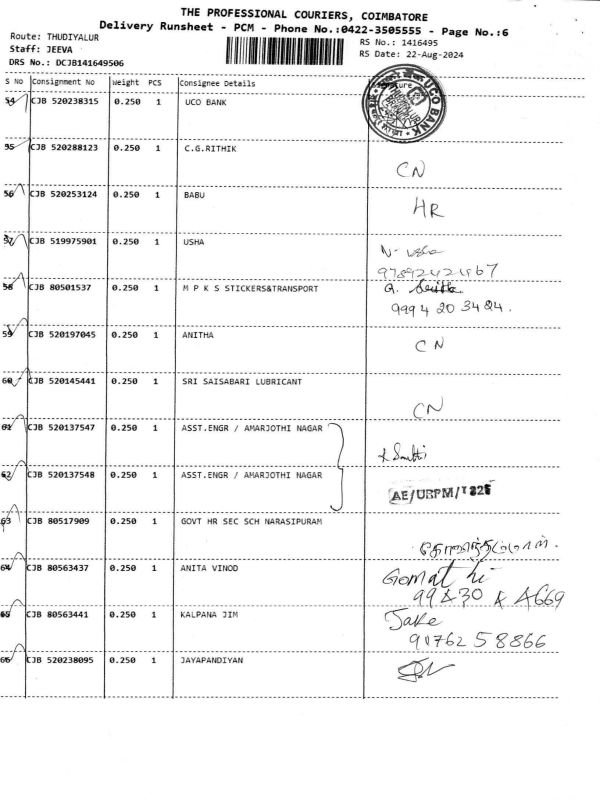 THE PROFESSIONAL COURIERS, COIMBATORE
Delivery Runsheet - PCM - Phone No.:0422-3505555 - Page No.:6
Route: THUDIYALUR
RS No.: 1416495
Staff: JEEVA
RS Date: 22-Aug-2024
DRS No.: DCJB141649506
S No Consignment No Weight PCS Consignee Details
54 CJB 520238315 0.250 1 UCO BANK UCO BANK
55 CJB 520288123 0.250 1 C.G.RITHIK
CN
56 CJB 520253124 0.250 1 BABU
HR
57 CJB 519975901 0.250 1 USHA
N- usha
58 CJB 80501537 0.250 1 M P K S STICKERS&TRANSPORT
9994 20 3484.
59 CJB 520197045 0.250 1 ANITHA
CN
60 CJB 520145441 0.250 1 SRI SAISABARI LUBRICANT
CN
61 CJB 520137547 0.250 1 ASST.ENGR / AMARJOTHI NAGAR
62 CJB 520137548 0.250 1 ASST.ENGR / AMARJOTHI NAGAR
63 CJB 80517909 0.250 1 GOVT HR SEC SCH NARASIPURAM
64 CJB 80563437 0.250 1 ANITA VINOD
Gomathi
65 CJB 80563441 0.250 1 KALPANA JIM
Jake
90762 58866
66 CJB 520238095 0.250 1 JAYAPANDIYAN